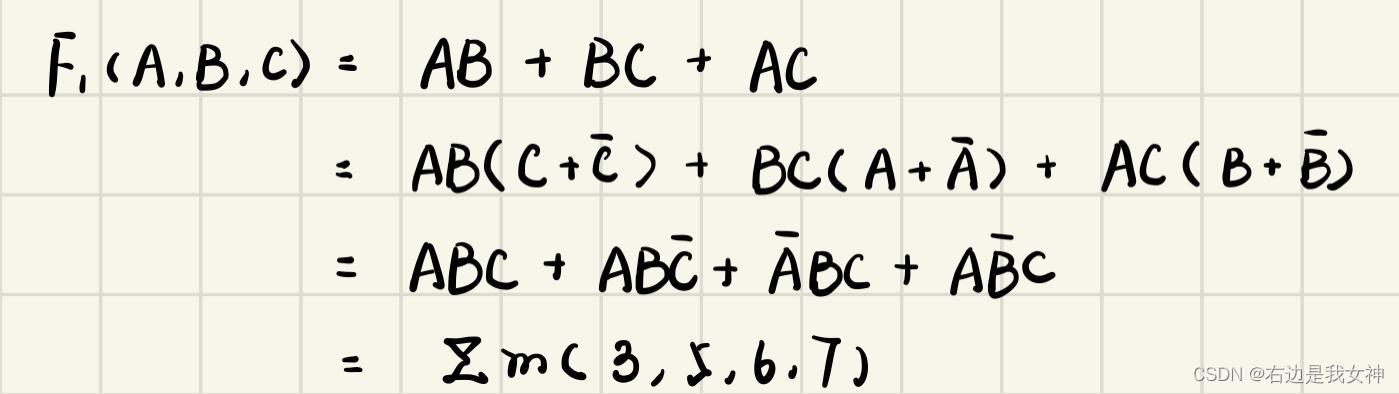 F̄₁(A,B,C) = AB + BC + AC
= AB(C+C̄) + BC(A+Ā) + AC(B+B̄)
= ABC + ABC̄ + ĀBC + AB̄C
= Σm(3,5,6,7)
CSDN @右边是我女神